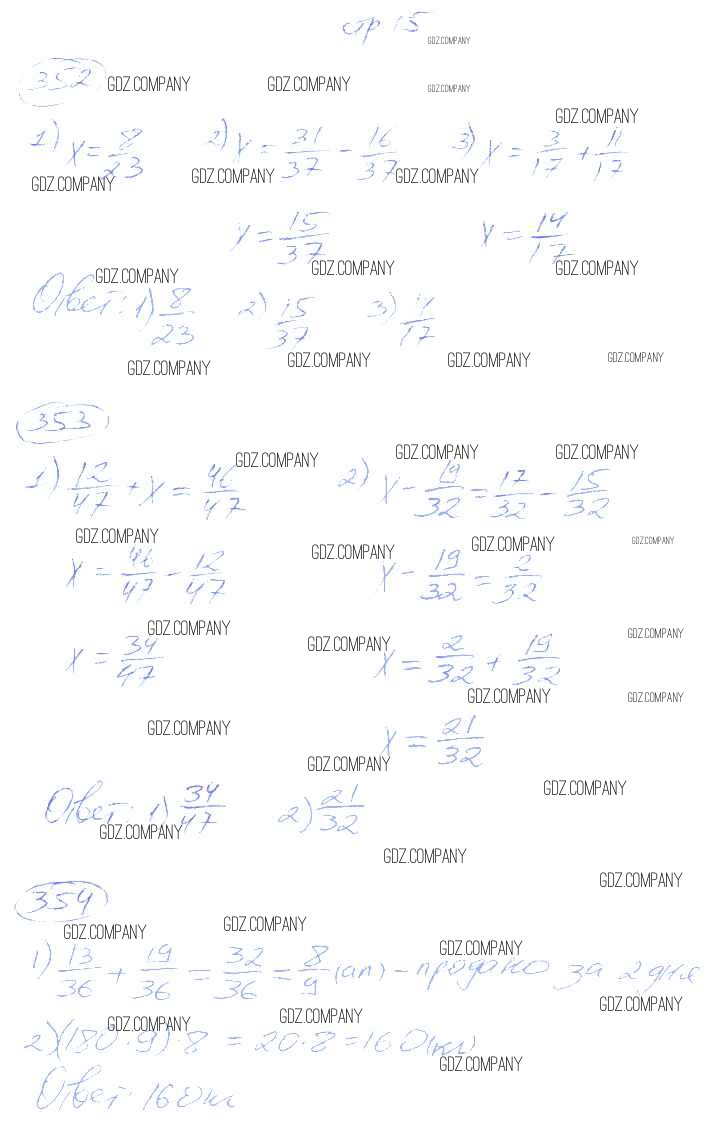 стр 15
GDZ.COMPANY
352 GDZ.COMPANY GDZ.COMPANY GDZ.COMPANY
GDZ.COMPANY
1) x = 8/23 2) y = 31/37 - 16/37 3) x = 3/17 + 11/17
GDZ.COMPANY GDZ.COMPANY GDZ.COMPANY
y = 15/37 y = 14/17
GDZ.COMPANY GDZ.COMPANY GDZ.COMPANY
Ответ: 1) 8/23 2) 15/37 3) 11/17
GDZ.COMPANY GDZ.COMPANY GDZ.COMPANY GDZ.COMPANY
353
GDZ.COMPANY GDZ.COMPANY GDZ.COMPANY
1) 12/47 + x = 46/47 2) x - 19/32 = 17/32 - 15/32
GDZ.COMPANY GDZ.COMPANY GDZ.COMPANY GDZ.COMPANY
x = 46/47 - 12/47 x - 19/32 = 2/32
GDZ.COMPANY GDZ.COMPANY GDZ.COMPANY
x = 34/47 x = 2/32 + 19/32
GDZ.COMPANY GDZ.COMPANY
GDZ.COMPANY
x = 21/32
GDZ.COMPANY
GDZ.COMPANY
Ответ: 1) 34/47 2) 21/32
GDZ.COMPANY
GDZ.COMPANY
GDZ.COMPANY
354
GDZ.COMPANY GDZ.COMPANY GDZ.COMPANY
1) 13/36 + 19/36 = 32/36 = 8/9 (ап) - продано за 2 дня
GDZ.COMPANY GDZ.COMPANY GDZ.COMPANY
2) (180 · 9) · 8 = 20 · 8 = 160 (кг)
GDZ.COMPANY
Ответ: 160 кг